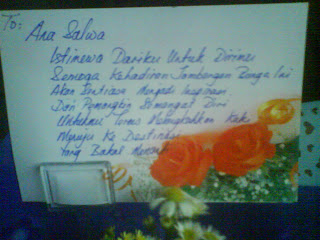 To:
Ana Salwa
Istimewa Dariku Untuk Dirimu
Semoga Kehadiran Jambangan Bunga Ini
Akan Sentiasa Menjadi Inspirasi
Dan Pemangkin Semangat Diri
Untukmu Terus Melangkahkan Kaki
Menuju Ke Destinasi
Yang Bakal